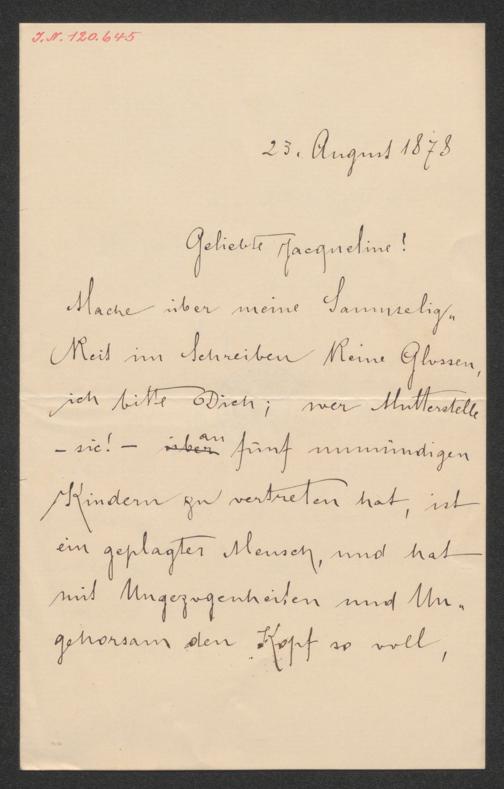 J.N. 120.645
23. August 1878
Geliebte Jacqueline!
Mache über meine Saumselig„
Keit im Schreiben Keine Glossen,
ich bitte Dich; wer Mutterstelle
– sic! – über an fünf unmündigen
Kindern zu vertreten hat, ist
ein geplagter Mensch, und hat
mit Ungezogenheiten und Un„
gehorsam den Kopf so voll,